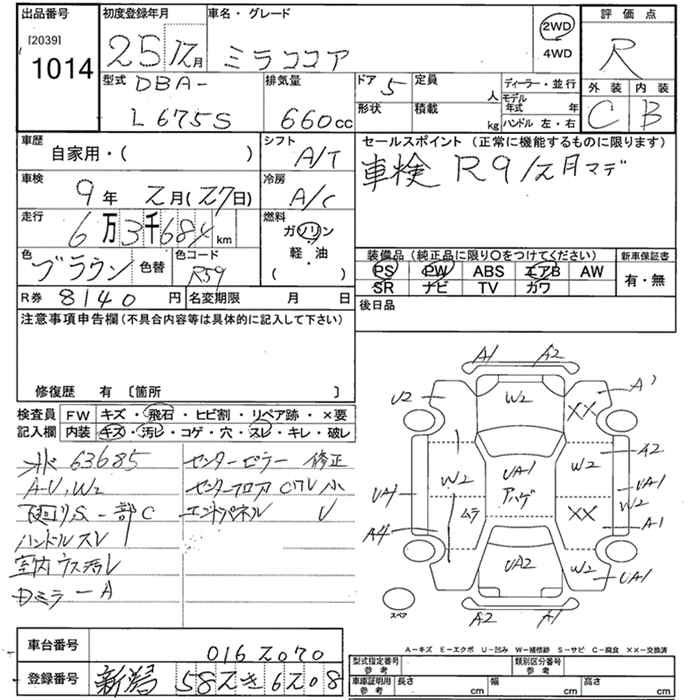 出品番号
[2039]
1014
初度登録年月
25 12月
車名・グレード
ミラココア
2WD
4WD
評価点
R
外装 内装
C B
型式
DBA-
L675S
排気量
660cc
ドア 5
定員 人
形状
積載 kg
ディーラー・並行
モデル年式 年
ハンドル 左・右
車歴
自家用・( )
シフト
A/T
車検
9年 2月(27日)
冷房
A/C
走行
6万3千684km
燃料
ガソリン
軽・油
( ・ )
色
ブラウン
色替
色コード
R59
R券 8140 円
名変期限 月 日
セールスポイント (正常に機能するものに限ります)
車検 R9/2月マデ
装備品 (純正品に限り〇をつけてください)
PS PW ABS エアB AW
SR ナビ TV カワ
新車保証書
有・無
後日品
注意事項申告欄 (不具合内容等は具体的に記入して下さい)
修復歴 有 〔箇所 〕
検査員 FW キズ・飛石・ヒビ割・リペア跡・×要
記入欄 内装 キズ・汚レ・コゲ・穴・スレ・キレ・破レ
63685
A-U,W2
廻りS 一部C
ハンドルスレ
室内ウス汚レ
Dミラー A
センターピラー 修正
センターフロア 小
エンドパネル U
A1 A2
U2 W2 A1 XX
W2 UA1 アハゲ W2 A2
UA1 W2
UA1 ムラ XX A1
A4
UA2 W2 UA1
A2 A1
スペア
A-キズ E-エクボ U-凹み W-補修跡 S-サビ C-腐食 XX-交換済
車台番号 0162070
登録番号 新潟 582 き 6208
型式指定番号 参考
類別区分番号 参考
車庫証明用 参考
長さ cm
幅 cm
高さ cm